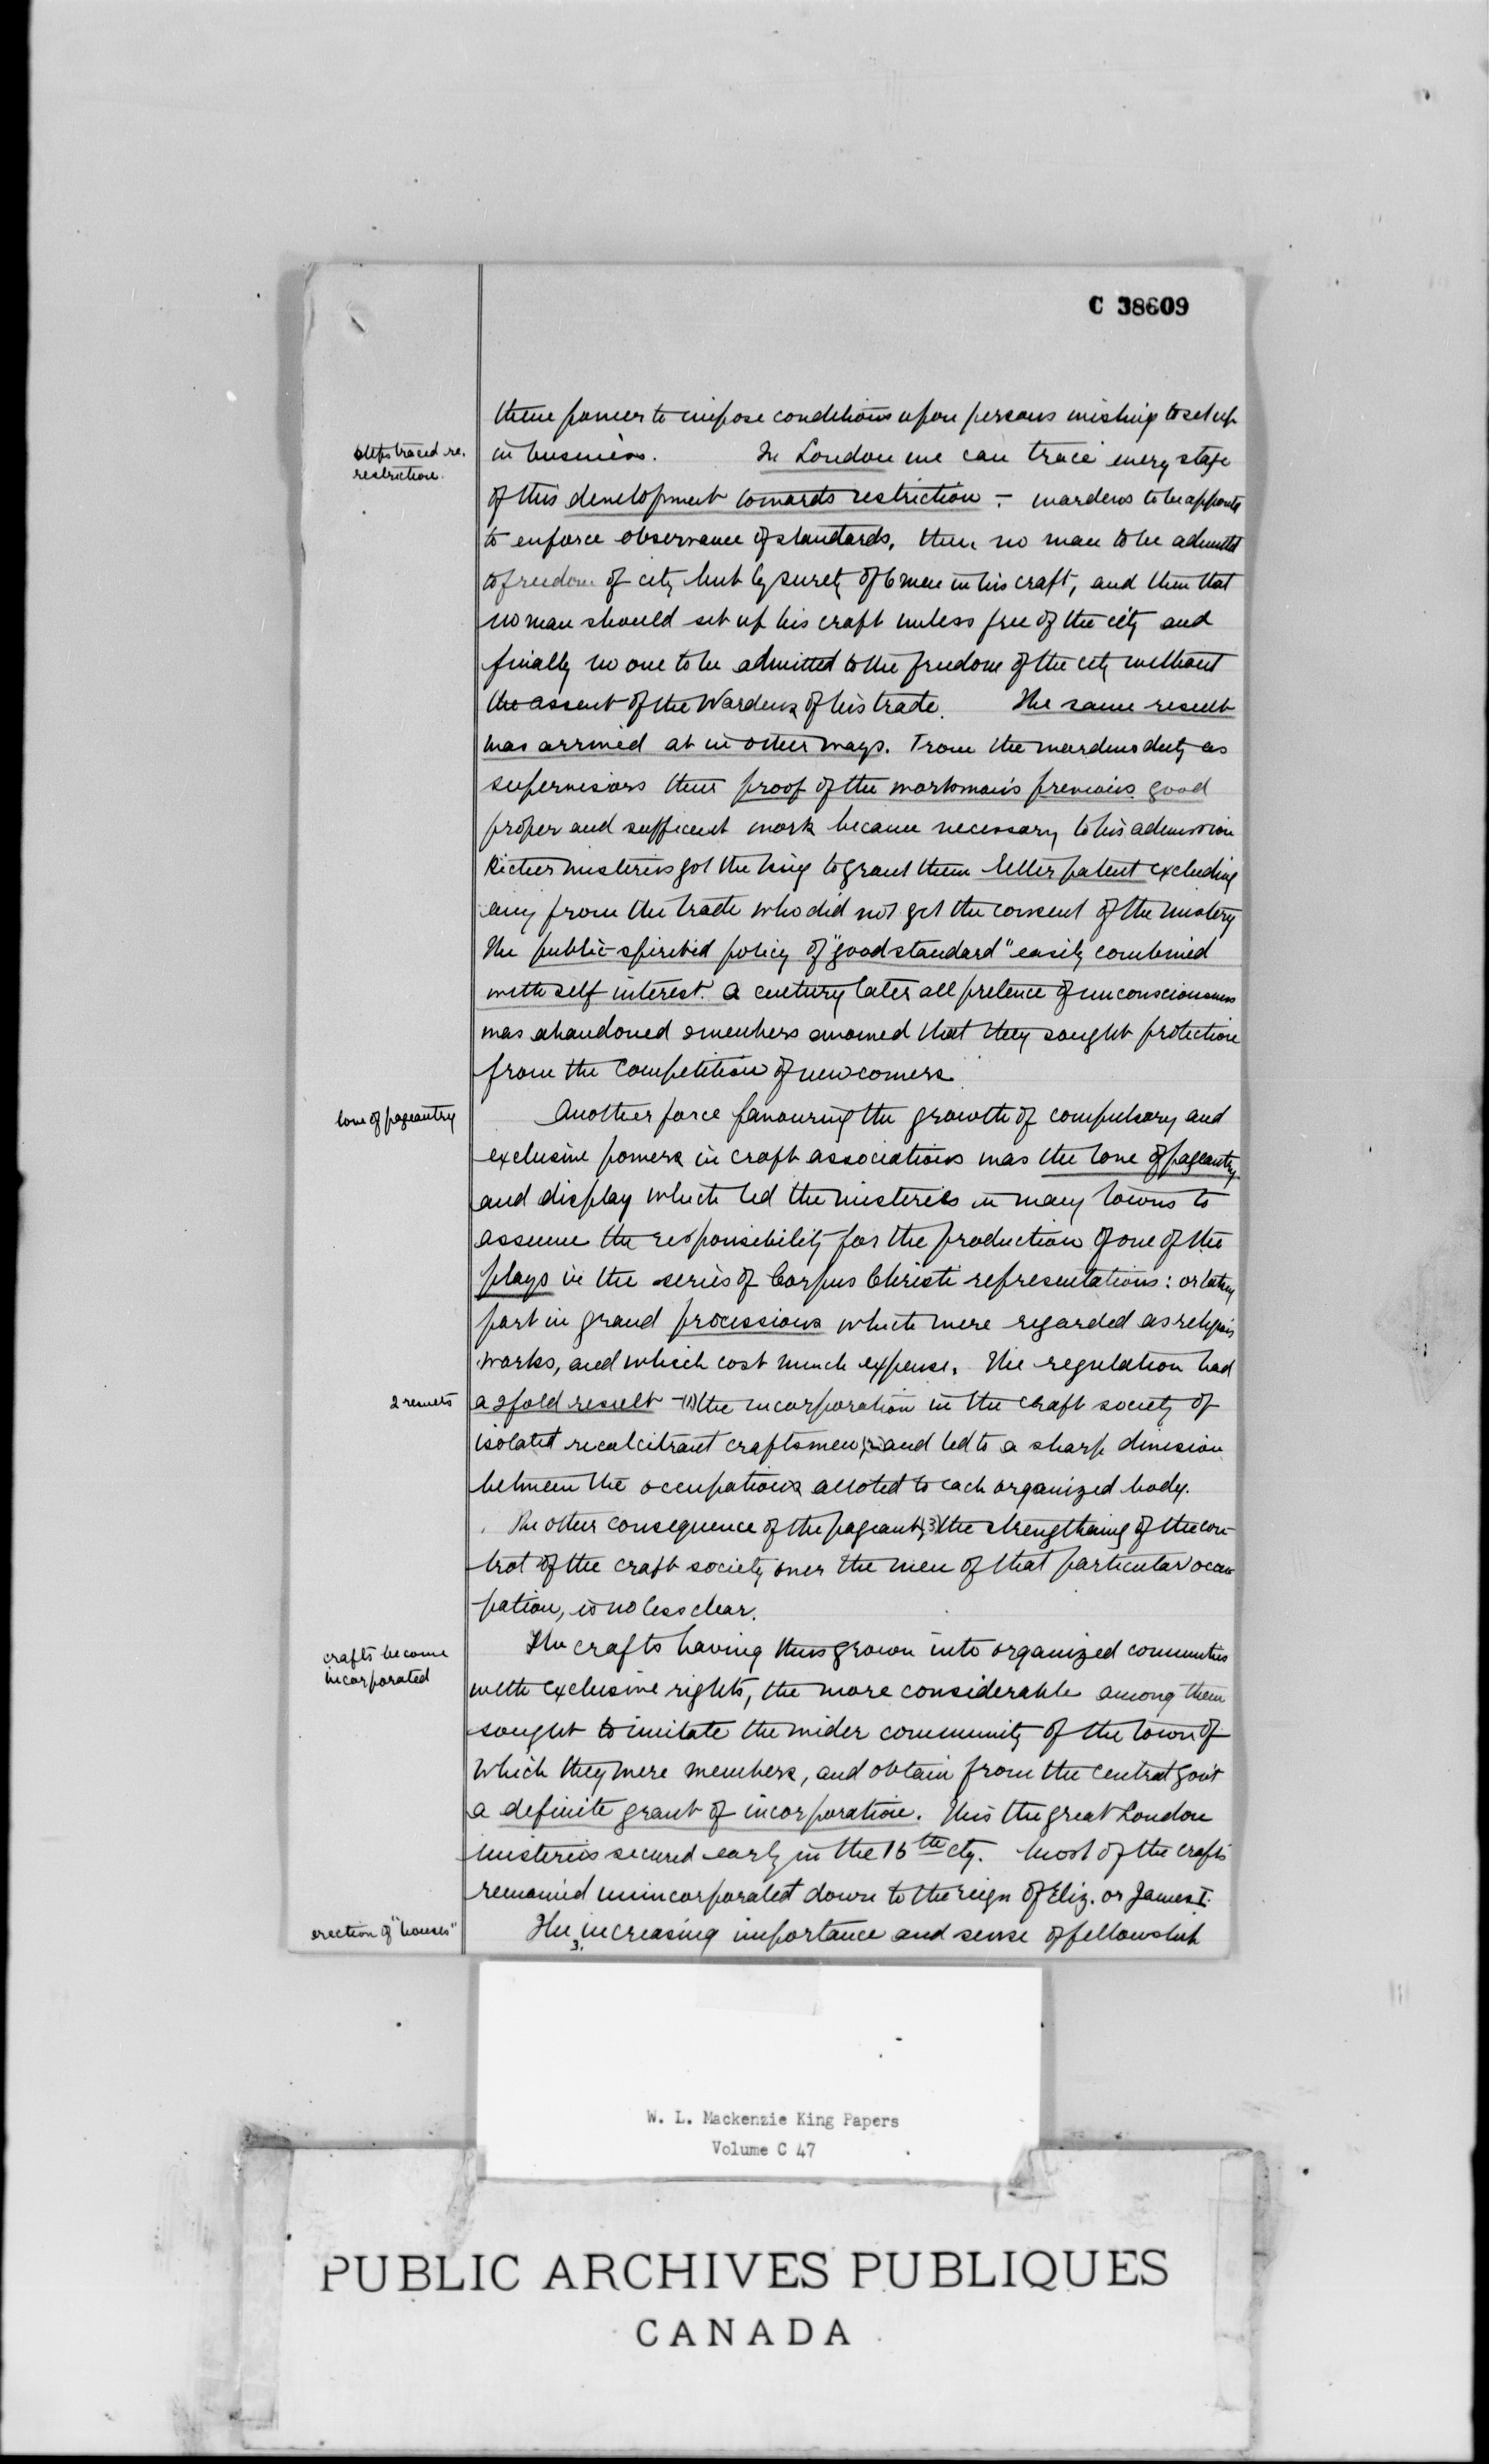 C 38609
them power to impose conditions upon persons wishing to set up
steps traced re.
restriction.
in business. In London we can trace every stage
of this development towards restriction - wardens to be appointd
to enforce observance of standards, then no man to be admittd
to freedom of city but by surety of 6 men in his craft, and then that
no man should set up his craft unless free of the city and
finally no one to be admitted to the freedom of the city without
the assent of the Wardens of his trade. The same result
was arrived at in other ways. From the wardens duty as
supervisors then proof of the workman's previous good
proper and sufficent work became necessary to his admission
Richer misteries got the king to grant them letter patent excluding
any from the trade who did not get the consent of the mistery
The public-spirited policy of "good standard" easily combined
with self interest. A century later all pretence of unconsciousness
was abandoned & members avowed that they sought protection
from the competition of new comers
love of pageantry
Another force favouring the growth of compulsory and
exclusive powers in craft associations was the love of pageantry
and display which led the misteries in many towns to
assume the responsibility for the production of one of the
plays in the series of Corpus Christi representations: or taking
part in grand processions which were regarded as religious
works, and which cost much expense. The regulation had
2 results
a 2fold result - (1) the incorporation in the craft society of
isolated recalcitrant craftsmen, (2) and led to a sharp division
between the occupations alloted to each organized body.
The other consequence of the pageants, (3) the strengthaing of the con-
trol of the craft society over the men of that particular occu
pation, is no less clear.
crafts become
incorporated
The crafts having thus grown into organized communities
with exclusive rights, the more considerable among them
sought to imitate the wider community of the town of
which they were members, and obtain from the central gov't
a definite grant of incorporation. This the great London
misteries secured early in the 15th cty. Most of the crafts
remained unincorporated down to the reign of Eliz. or James I.
erection of "houses"
The increasing importance and sense of fellowship
3.
W. L. Mackenzie King Papers
Volume C 47
PUBLIC ARCHIVES PUBLIQUES
CANADA